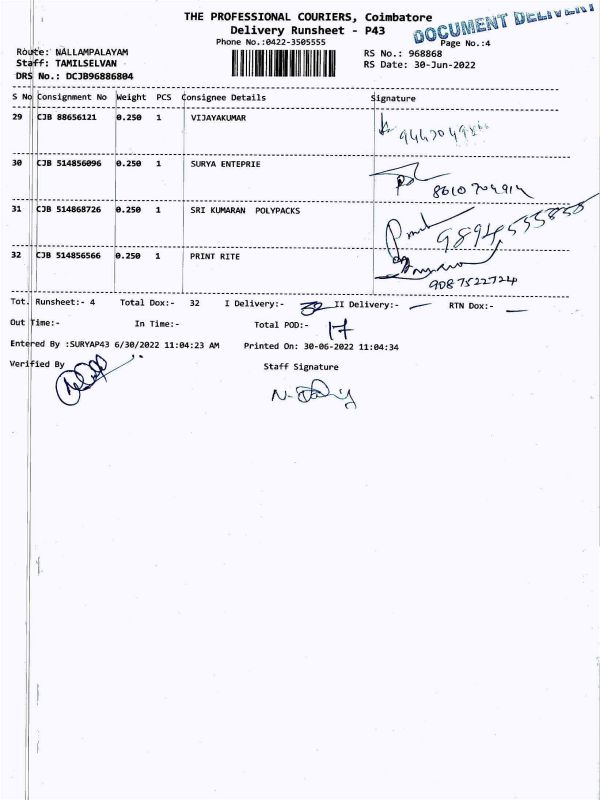 THE PROFESSIONAL COURIERS, Coimbatore
DOCUMENT DELIVERY
Delivery Runsheet - P43
Phone No.:0422-3505555
Page No.:4
Route: NALLAMPALAYAM
RS No.: 968868
Staff: TAMILSELVAN
RS Date: 30-Jun-2022
DRS No.: DCJB96886804
S No Consignment No Weight PCS Consignee Details Signature
29 CJB 88656121 0.250 1 VIJAYAKUMAR
30 CJB 514856096 0.250 1 SURYA ENTEPRIE
8610 704914
31 CJB 514868726 0.250 1 SRI KUMARAN POLYPACKS
9894555858
32 CJB 514856566 0.250 1 PRINT RITE
9087522724
Tot. Runsheet:- 4 Total Dox:- 32 I Delivery:- 32 II Delivery:- — RTN Dox:- —
Out Time:- In Time:- Total POD:- 17
Entered By :SURYAP43 6/30/2022 11:04:23 AM Printed On: 30-06-2022 11:04:34
Verified By Staff Signature